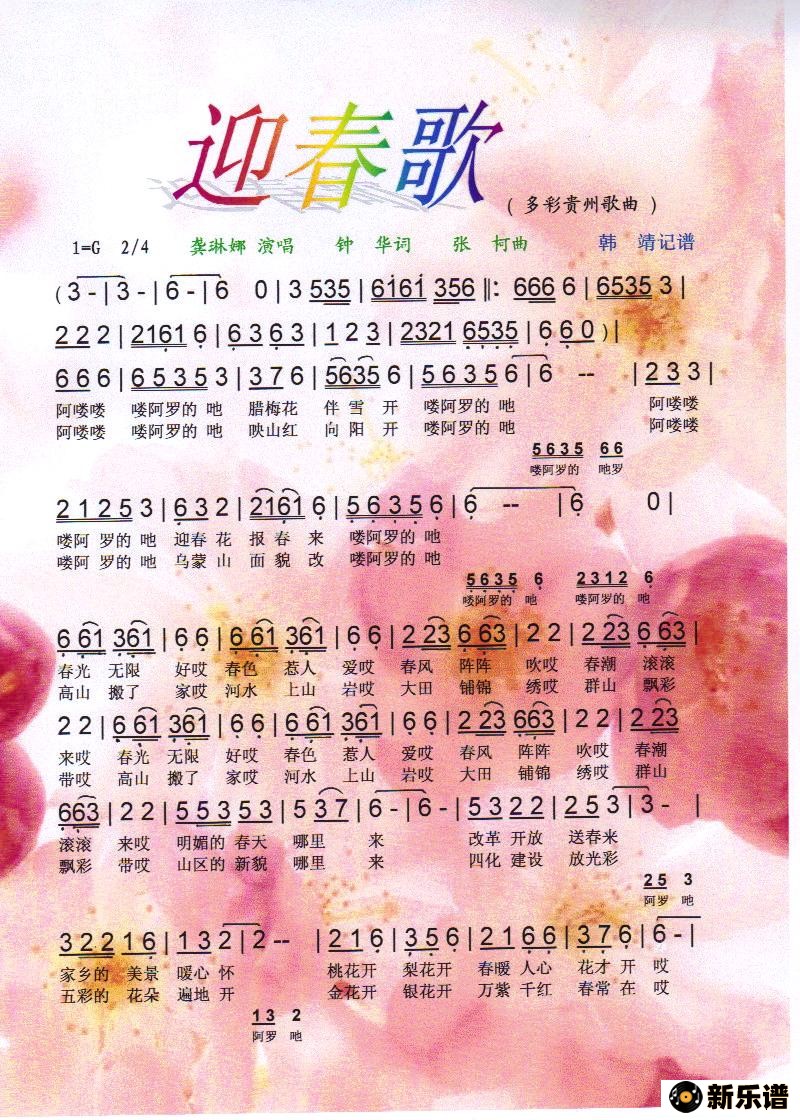 迎春歌
( 多彩贵州歌曲 )
1=G 2/4 龚琳娜 演唱 钟 华词 张 柯曲 韩 靖记谱
( 3 - | 3 - | 6 - | 6 0 | 3 535 | 6161 356 ‖: 666 6 | 6535 3 |
2 2 2 | 2161 6 | 6 3 6 3 | 1 2 3 | 2321 6535 | 6 6 0 ) |
6 6 6 | 6 5 3 5 3 | 3 7 6 | 5635 6 | 5 6 3 5 6 | 6 -- | 2 3 3 |
阿喽喽 喽阿罗的 吔 腊梅花 伴 雪 开 喽阿罗的 吔 阿喽喽
阿喽喽 喽阿罗的 吔 映山红 向 阳 开 喽阿罗的 吔 阿喽喽
5 6 3 5 6 6
喽阿罗的 吔罗
2 1 2 5 3 | 6 3 2 | 2161 6 | 5 6 3 5 6 | 6 -- | 6 0 |
喽阿 罗的 吔 迎春 花 报 春 来 喽阿罗的 吔
喽阿 罗的 吔 乌蒙 山 面 貌 改 喽阿罗的 吔
5 6 3 5 6 2 3 1 2 6
喽阿罗的 吔 喽阿罗的 吔
6 61 361 | 6 6 | 6 61 361 | 6 6 | 2 23 6 63 | 2 2 | 2 23 6 63 |
春光 无限 好哎 春色 惹人 爱哎 春风 阵阵 吹哎 春潮 滚滚
高山 搬了 家哎 河水 上山 岩哎 大田 铺锦 绣哎 群山 飘彩
2 2 | 6 61 361 | 6 6 | 6 61 361 | 6 6 | 2 23 663 | 2 2 | 2 23
来哎 春光 无限 好哎 春色 惹人 爱哎 春风 阵阵 吹哎 春潮
带哎 高山 搬了 家哎 河水 上山 岩哎 大田 铺锦 绣哎 群山
663 | 2 2 | 5 5 3 5 3 | 5 3 7 | 6 - | 6 - | 5 3 2 2 | 2 5 3 | 3 - |
滚滚 来哎 明媚的 春天 哪里 来 改革 开放 送春来
飘彩 带哎 山区的 新貌 哪里 来 四化 建设 放光彩
2 5 3
阿罗 吔
3 2 2 1 6 | 1 3 2 | 2 -- | 2 1 6 | 3 5 6 | 2 1 6 6 | 3 7 6 | 6 - |
家乡的 美景 暖心 怀 桃花开 梨花开 春暖 人心 花才 开 哎
五彩的 花朵 遍地 开 金花开 银花开 万紫 千红 春常 在 哎
1 3 2
阿罗 吔
新乐谱